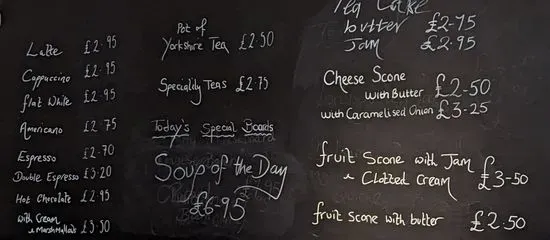 Latte £2.95
Cappuccino £2.95
flat White £2.95
Americano £2.75
Espresso £2.70
Double Espresso £3.20
Hot Chocolate £2.95
with Cream
& Marshmallows £3.50
Pot of
Yorkshire Tea £2.50
Speciality Teas £2.75
Today's Special Boards
Soup of the Day
£6.95
Tea Cake
butter £2-75
Jam £2.95
Cheese Scone
with Butter £2-50
with Caramelised Onion £3-25
fruit Scone with Jam
& Clotted Cream £3-50
fruit scone with butter £2.50